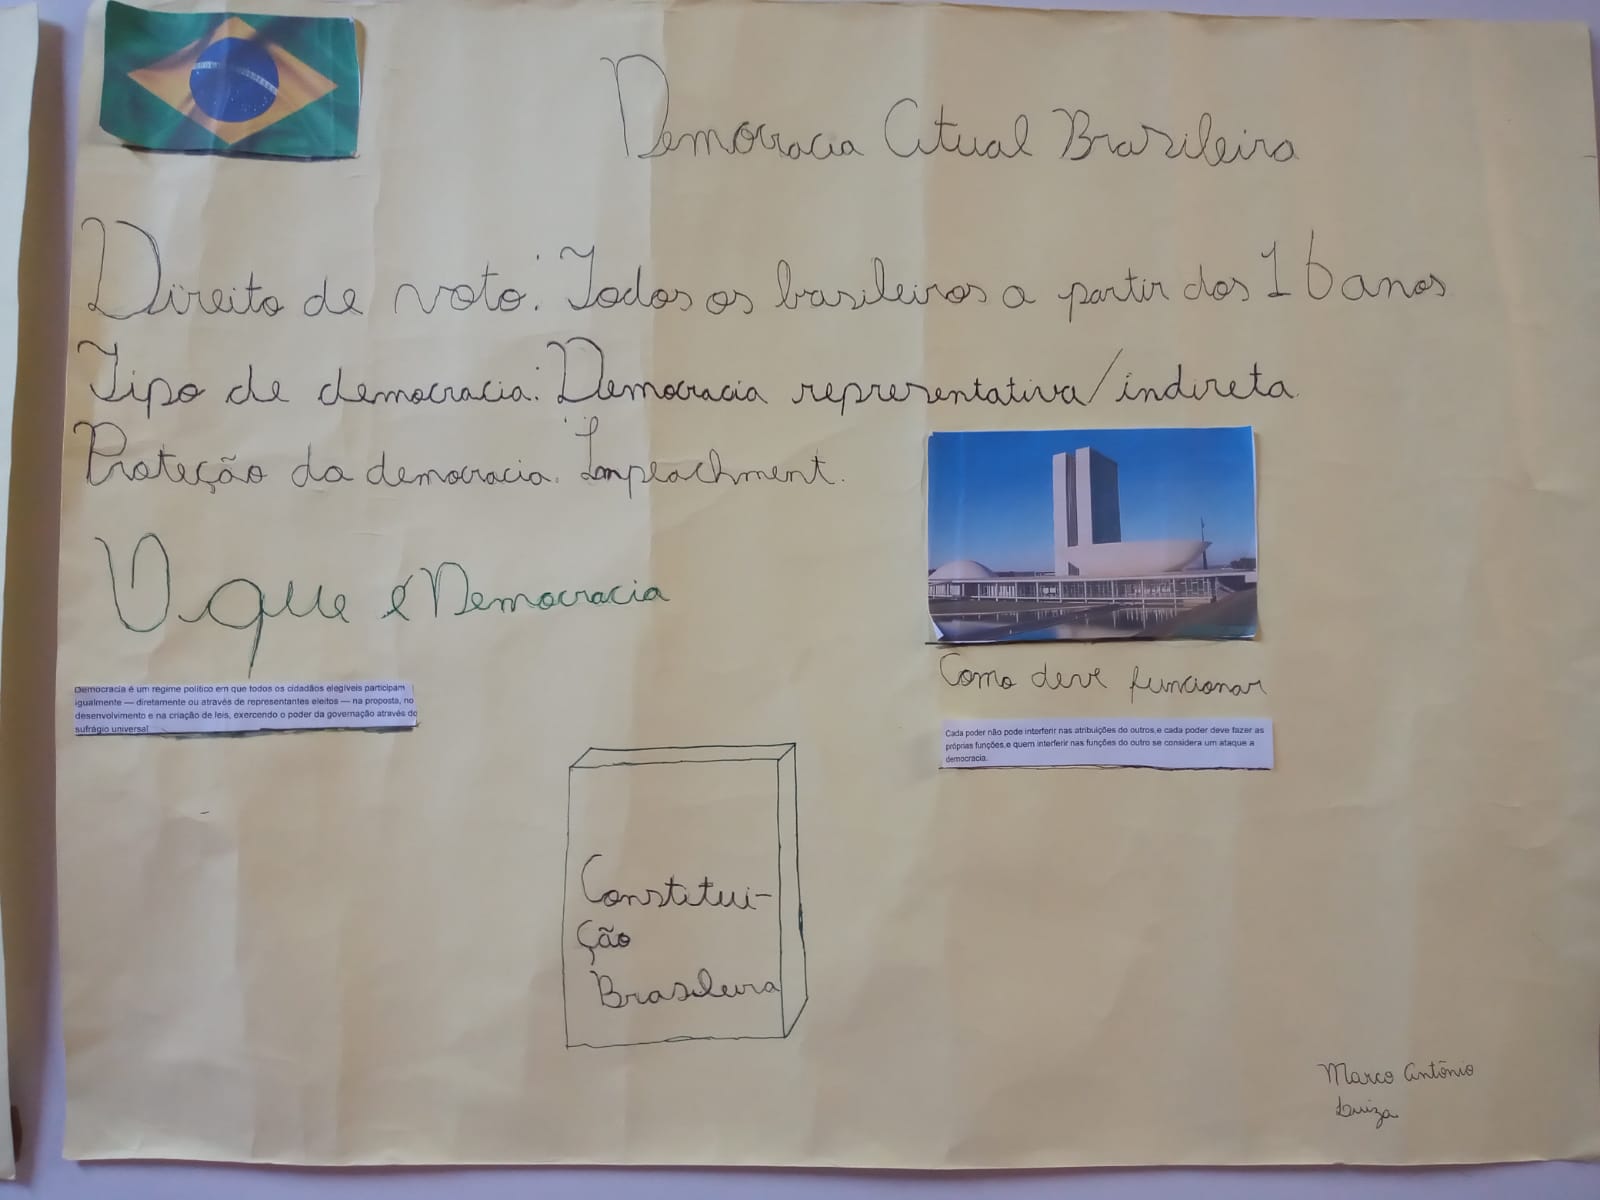 Democracia Atual Brasileira
Direito de voto: Todos os brasileiros a partir dos 16 anos
Tipo de democracia: Democracia representativa/indireta.
Proteção da democracia: Impeachment.
O que é Democracia
Democracia é um regime político em que todos os cidadãos elegíveis participam
igualmente — diretamente ou através de representantes eleitos — na proposta, no
desenvolvimento e na criação de leis, exercendo o poder da governação através do
sufrágio universal
Como deve funcionar
Cada poder não pode interferir nas atribuições do outros,e cada poder deve fazer as
próprias funções,e quem interferir nas funções do outro se considera um ataque a
democracia.
Constitui-
ção
Brasileira
Marco Antônio
Luiza